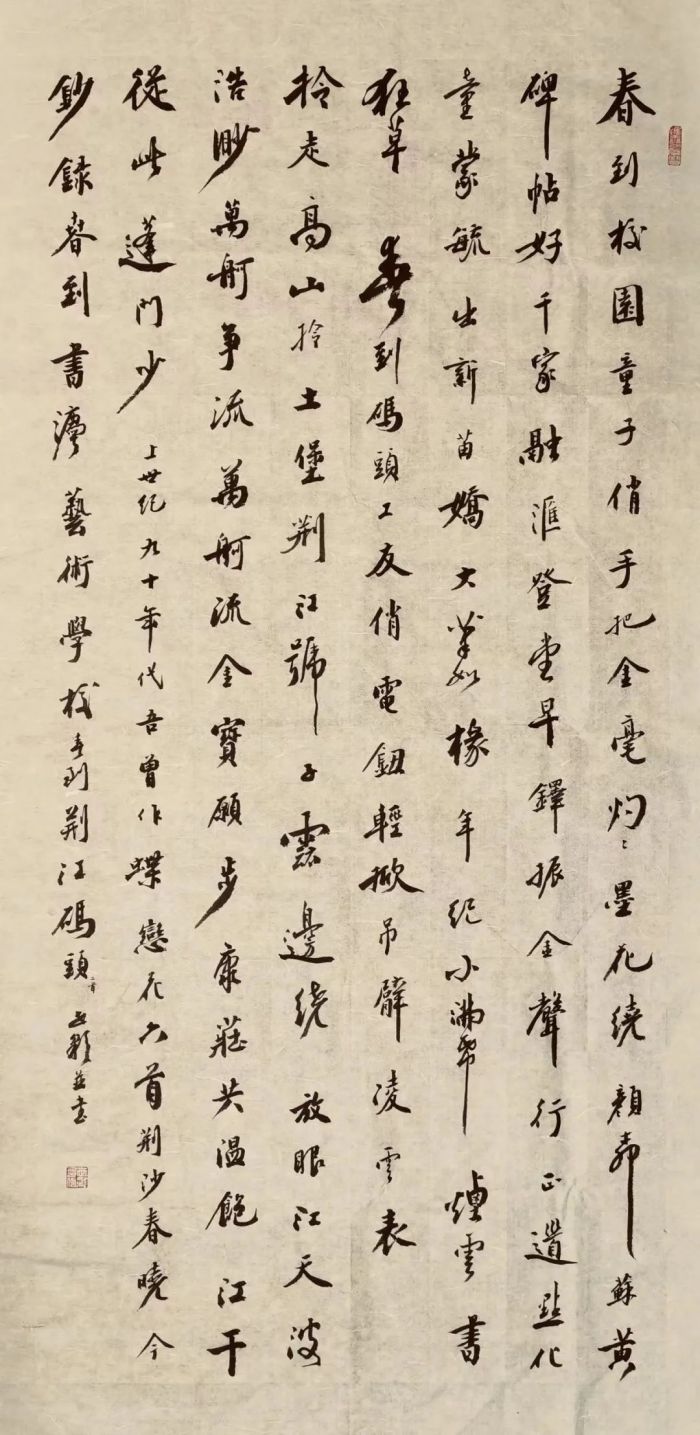 春到校園童子俏手把金毫灼灼墨花繞顏柳蘇黃
碑帖好千家融滙登堂早鐸振金聲行正道點化
童蒙毓出新苗嬌大筆如椽年紀小滿紙煙雲書
狂草 春到碼頭工友俏電鈕輕撳吊臂凌雲表
拎走高山拎土堡荆江號子雲邊繞 放眼江天波
浩渺萬舸爭流萬舸流金寶願步康莊共温飽江干
從此蓬門少 上世紀九十年代吾曾作蝶戀花六首荆沙春曉今
鈔錄春到書灣藝術學校春到荆江碼頭二首 並書